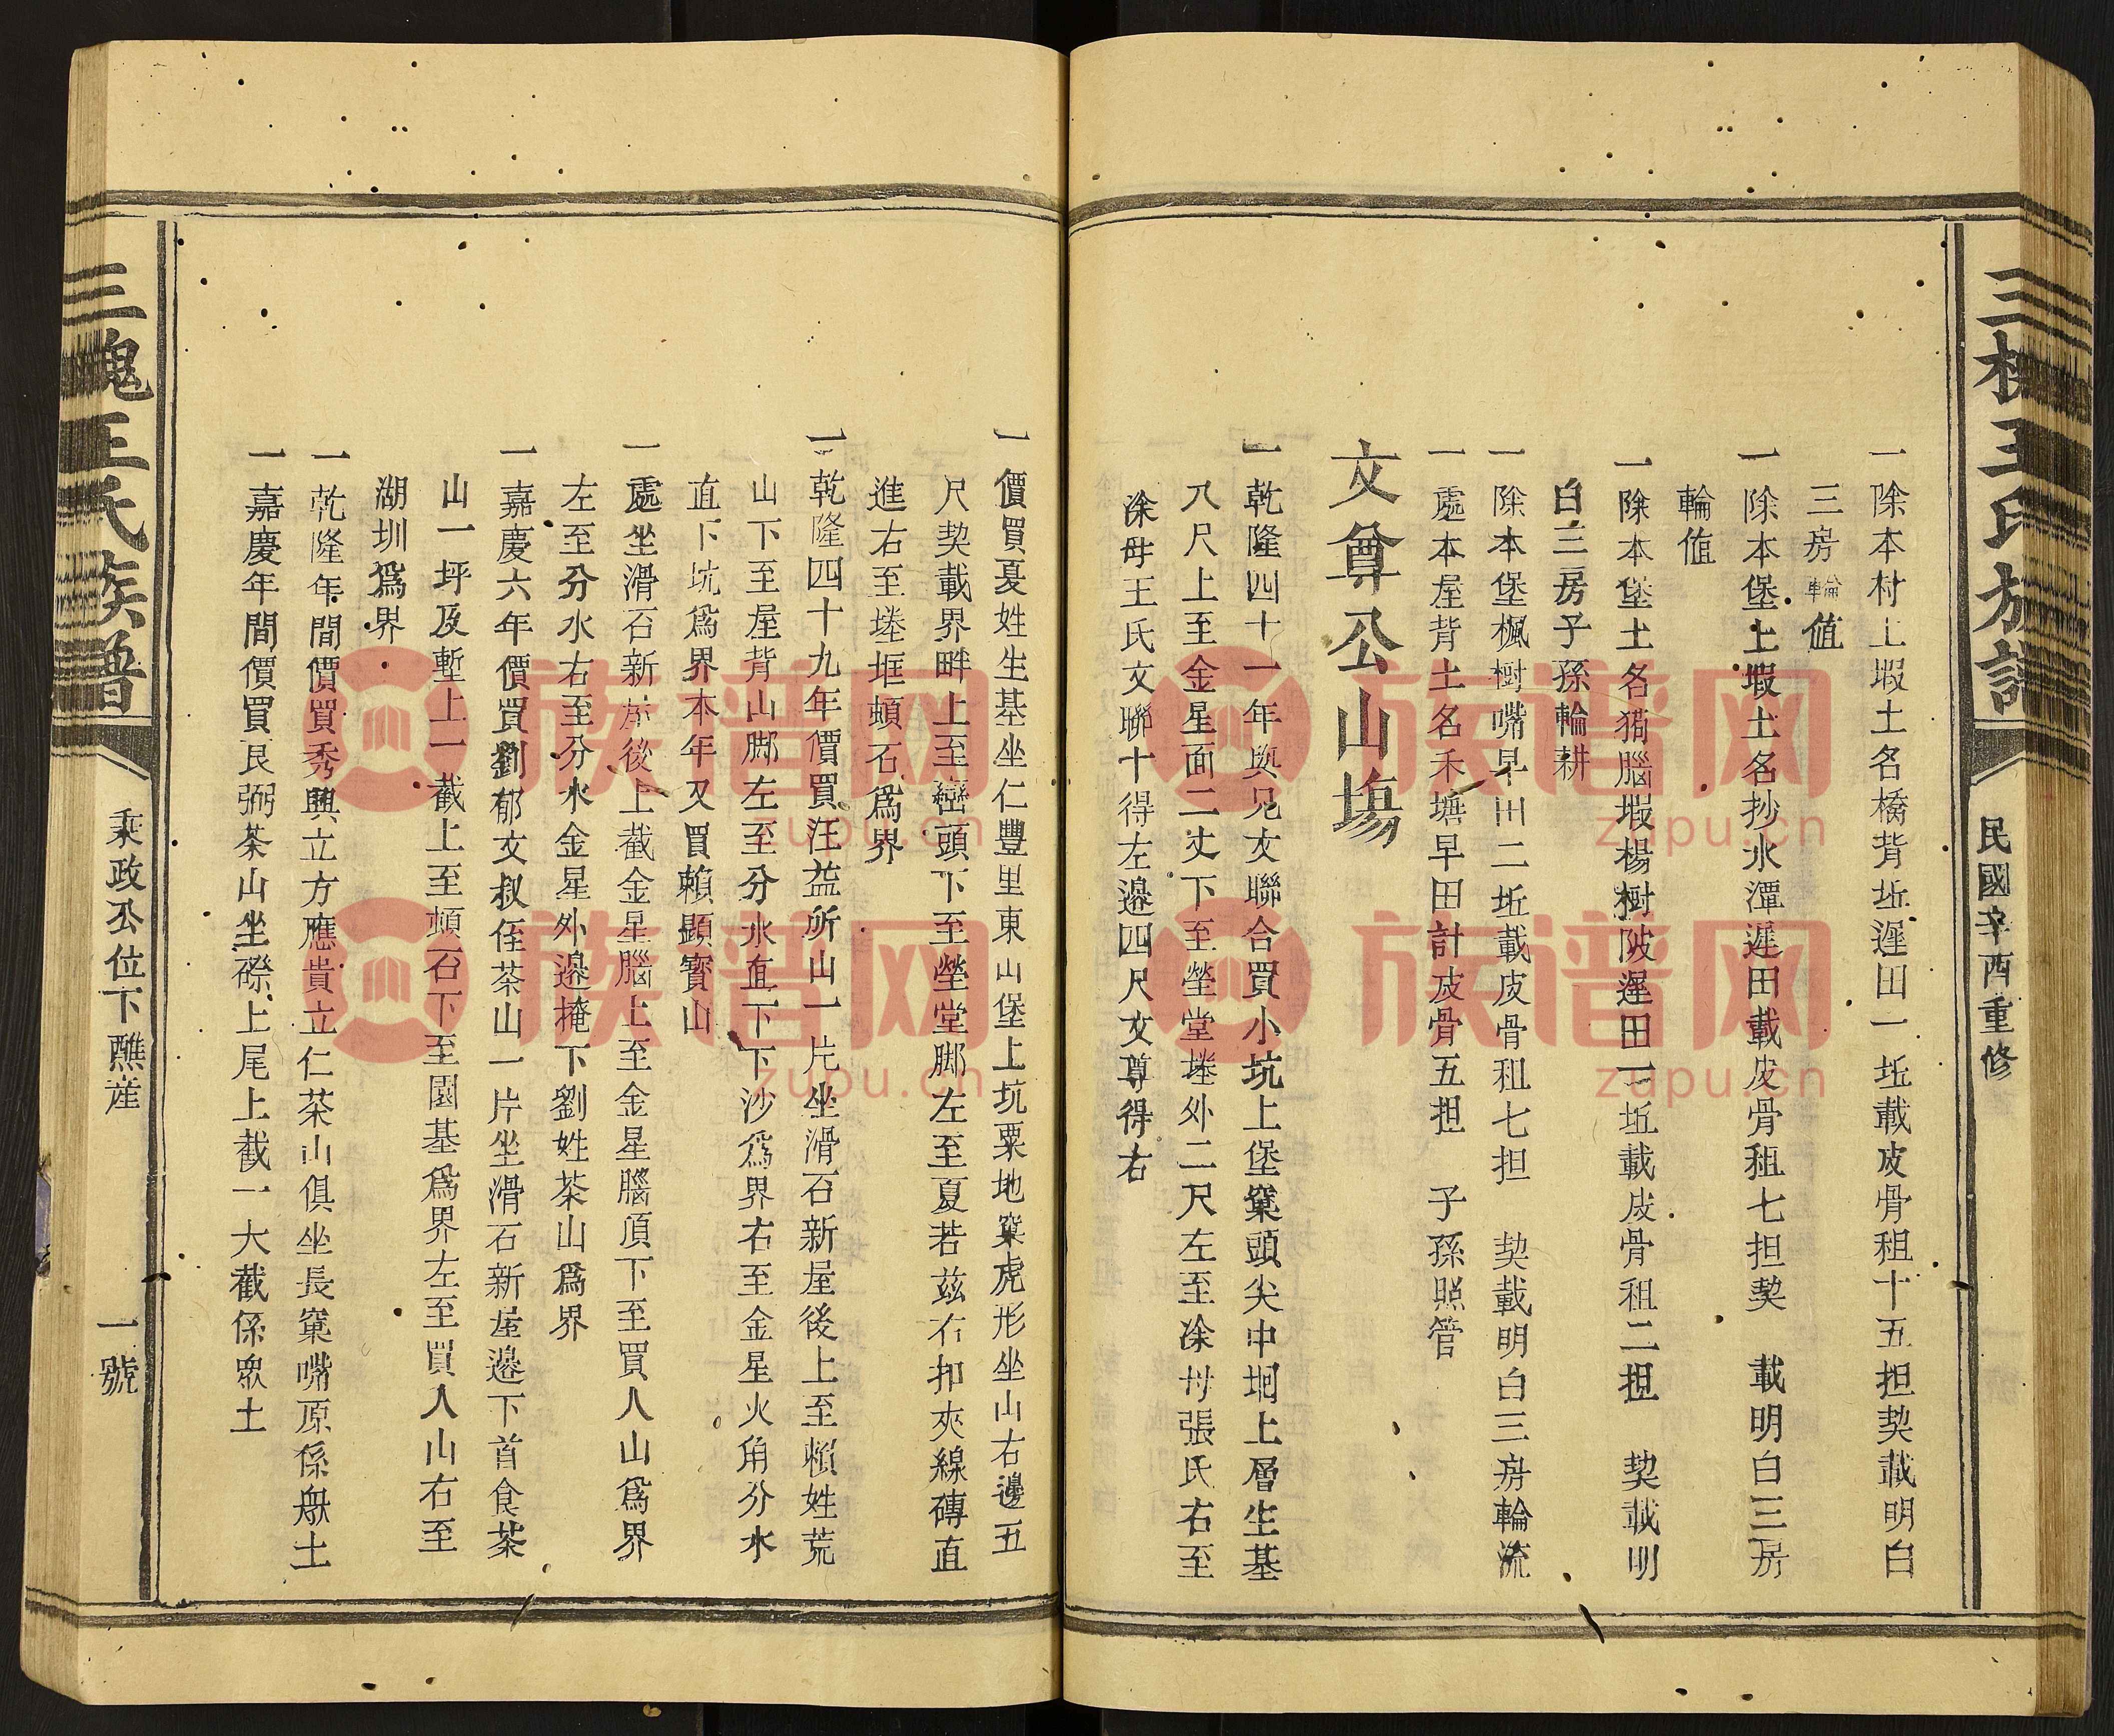 三槐王氏族譜
民國辛酉重修
一除本村上塅土名橋背坵遲田一坵載皮骨租十五担契載明白
三房輪值
一除本堡上塅土名抄水潭遲田載皮骨租七担契 載明白三房
輪值
一除本堡土名獨腦塅楊樹陂遲田一坵載皮骨租二担 契載明
白三房子孫輪耕
一除本堡楓樹嘴早田二坵載皮骨租七担 契載明白三房輪流
一處本屋背土名禾塘早田計皮骨五担 子孫照管
文尊公山塲
一乾隆四十一年與兄文聯合買小坑上堡窠頭尖中垇上層生基
八尺上至金星面二丈下至塋堂墘外二尺左至涂母張氏右至
涂母王氏文聯十得左邉四尺文尊得右
一價買夏姓生基坐仁豐里東山堡上坑粟地窠虎形坐山右邊五
尺契載界畔上至巒頭下至塋堂脚左至夏若玆右扣夾線磚直
進右至墘框頓石爲界
一乾隆四十九年價買汪益所山一片坐滑石新屋後上至賴姓荒
山下至屋背山脚左至分水直下下沙爲界右至金星火角分水
直下坑爲界本年又買賴顯寳山
一處坐滑石新屋後上截金星腦上至金星腦頂下至買人山爲界
左至分水右至分水金星外邉掩下劉姓茶山爲界
一嘉慶六年價買劉郁文叔侄茶山一片坐滑石新屋邉下首食茶
山一坪及塹上一截上至頓石下至園基爲界左至買人山右至
湖圳爲界
一乾隆年間價買秀興立方應貴立仁茶山俱坐長窠嘴原係衆土
一嘉慶年間價買良弼茶山坐磜上尾上截一大截係衆土
三槐王氏族譜
秉政公位下醮產
一號